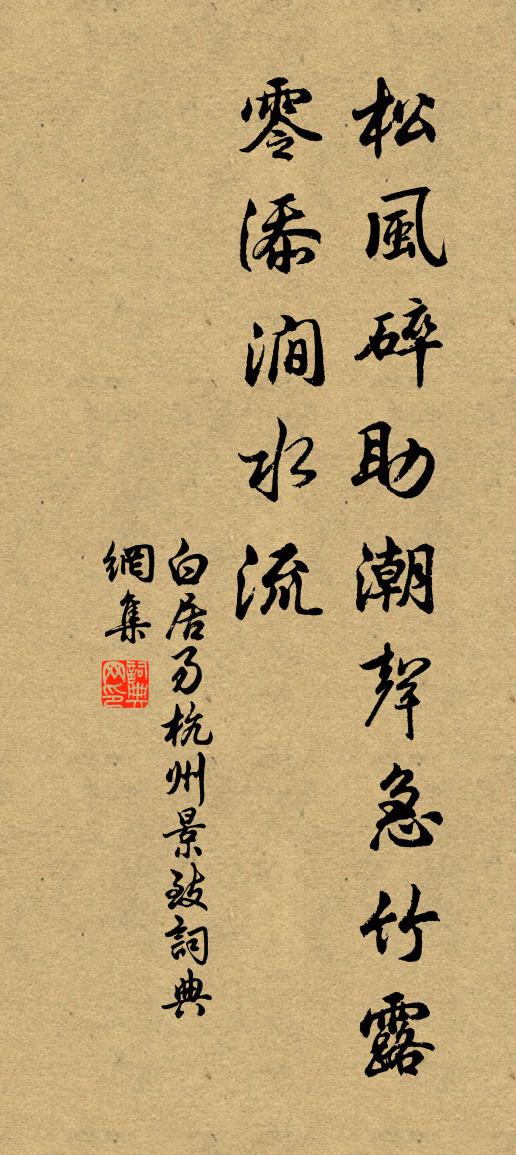 松風碎助潮聲急竹露
零添澗水流
白居易杭州景致詞典
網集
詞典
网印